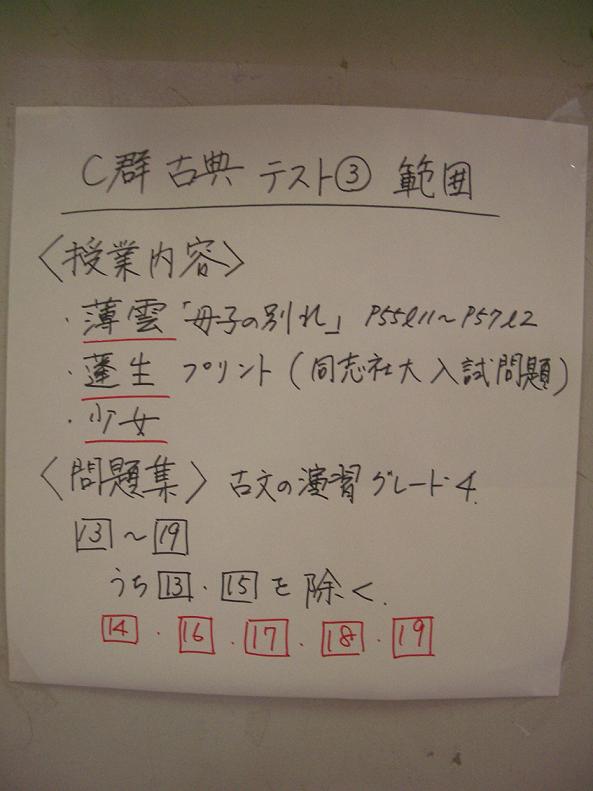 C群 古典 テスト③ 範囲
〈授業内容〉
・薄雲「母子の別れ」 P55ℓ11～P57ℓ2
・蓬生 プリント(同志社大 入試問題)
・少女
〈問題集〉 古文の演習 グレード4.
13～19
うち13・15を除く.
14・16・17・18・19